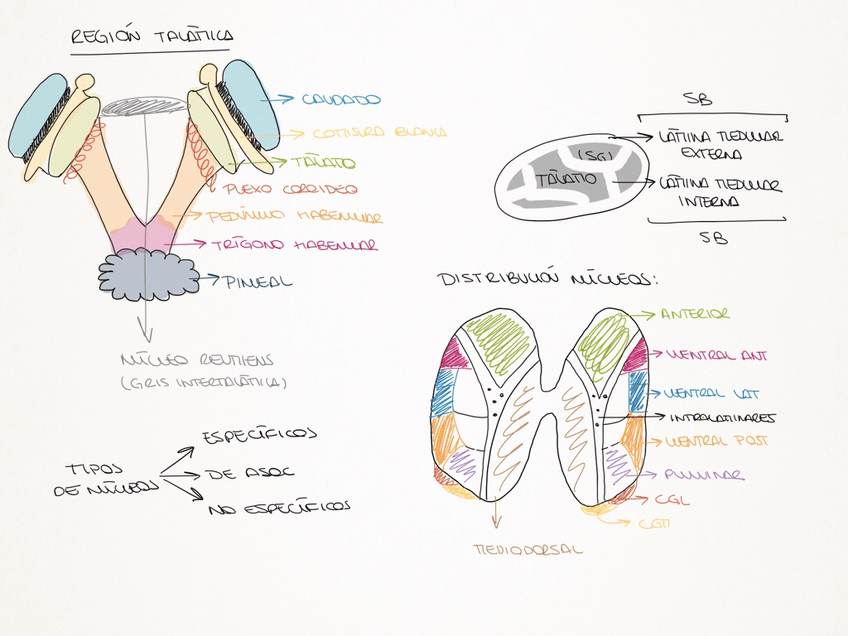 REGIÓN TALÁMICA
CAUDADO
COMISURA BLANCA
TÁLAMO
PLEXO COROIDEO
PEDÚNCULO HABENULAR
TRÍGONO HABENULAR
PINEAL
NÚCLEO REUNIENS
(GRIS INTERTALÁMICA)
TIPOS
DE NÚCLEOS
ESPECÍFICOS
DE ASOC
NO ESPECÍFICOS
SB
LÁMINA MEDULAR
EXTERNA
(SG)
TÁLAMO
LÁMINA MEDULAR
INTERNA
SB
DISTRIBUCIÓN NÚCLEOS:
ANTERIOR
VENTRAL ANT
VENTRAL LAT
INTRALAMINARES
VENTRAL POST
PULVINAR
CGL
CGM
MEDIODORSAL